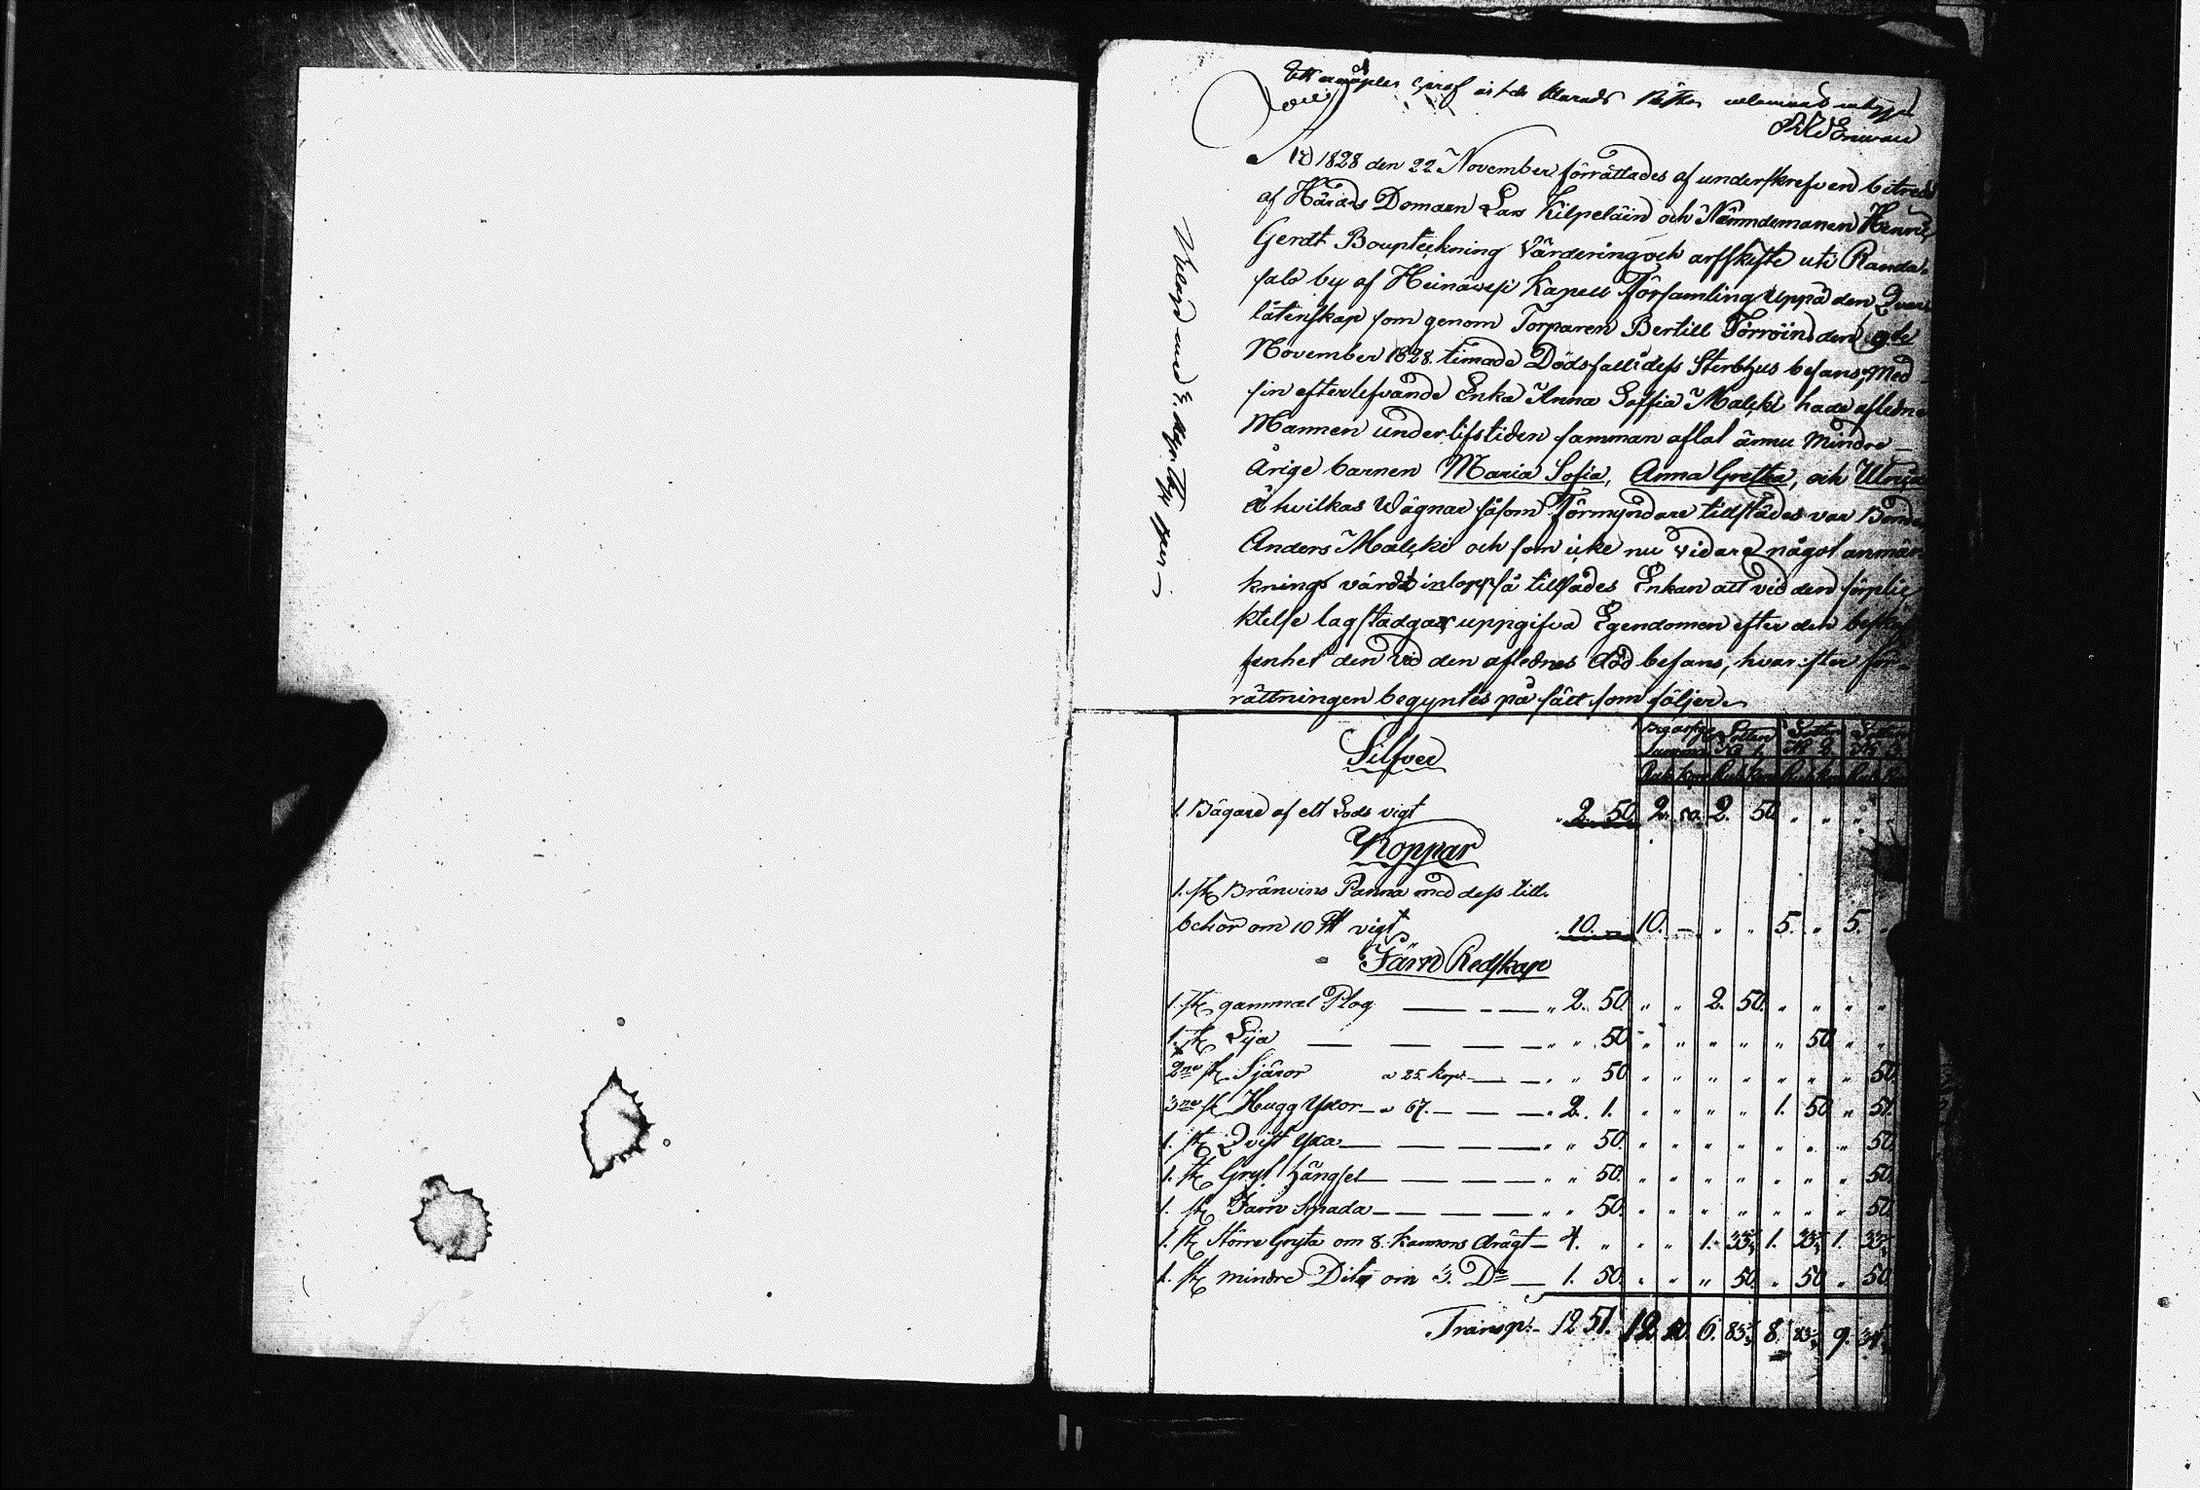 Ao 1828 den 22 November förrättades af underskrefven biträdd
af Härads Domaren Lars Kilpeläin och Nämndemannen Henric
Gerdt Bouptekning Värdering och arfskifte uti Randa-
salo by af Heinäwesi Kapell Församling uppå den Qvar-
låtenskap som genom Torparen Bertill Törröins den 9de
November 1828 timade Dödsfall i dess Sterbhus befans; Med
sin efterlefvande Enka Anna Soffia Malcki hade afledne
Mannen under lifstiden samman aflat ännu Mindre-
årige barnen Maria Sofia, Anna Gretha, och Ulrica
å hvilkas Wägnar såsom Förmyndare tillstädes var Bonden
Anders Malcki och som icke nu vidare något anmär-
knings värdt inlopp så tillsades Enkan att vid den förplic-
ktelse lag stadgar uppgifva Egendomen efter den beskaf-
fenhet den vid den aflednes död befans, hvarefter för-
rättningen begyntes på sätt som följer
Silfver
1. Bägare af ett Lods vigt 2. 50. 2. 50. 2. 50
Koppar
1. st Bränvins Panna med dess till-
behör om 10 ℔ vigt 10. — 10. — 5. 5.
Järn Redskap
1. st gammal Plog 2. 50. 2. 50.
1. st Lija 50. 50
2ne st Sjäror a 25. kop 50 50.
3ne st Hugg Yxor a 67. 2. 1. 1. 50 51.
1. st Qvist Yxa 50. 50.
1. st Gryt hängsel 50. 50.
1. st Järn Spada 50. 50
1. st Större Gryta om 8. Kannors drägt 4. 1. 33 1. 33 1. 33
1. st mindre Dito om 3. Do 1. 50. 50. 50 50
Transp: 12 51. 12 50. 6. 83 8. 83 9. 34